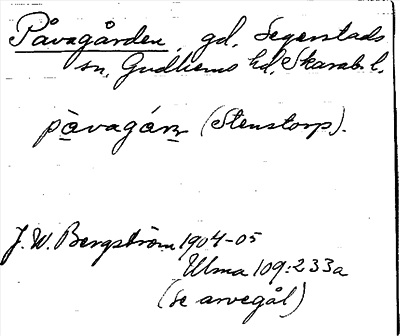 Påvagården, gd, Segerstads
sn, Gudhems hd, Skarab. l.
pàvagáṛn (Stenstorp).
J. W. Bergström 1904-05
Ulma 109:233a
(se arvegål)